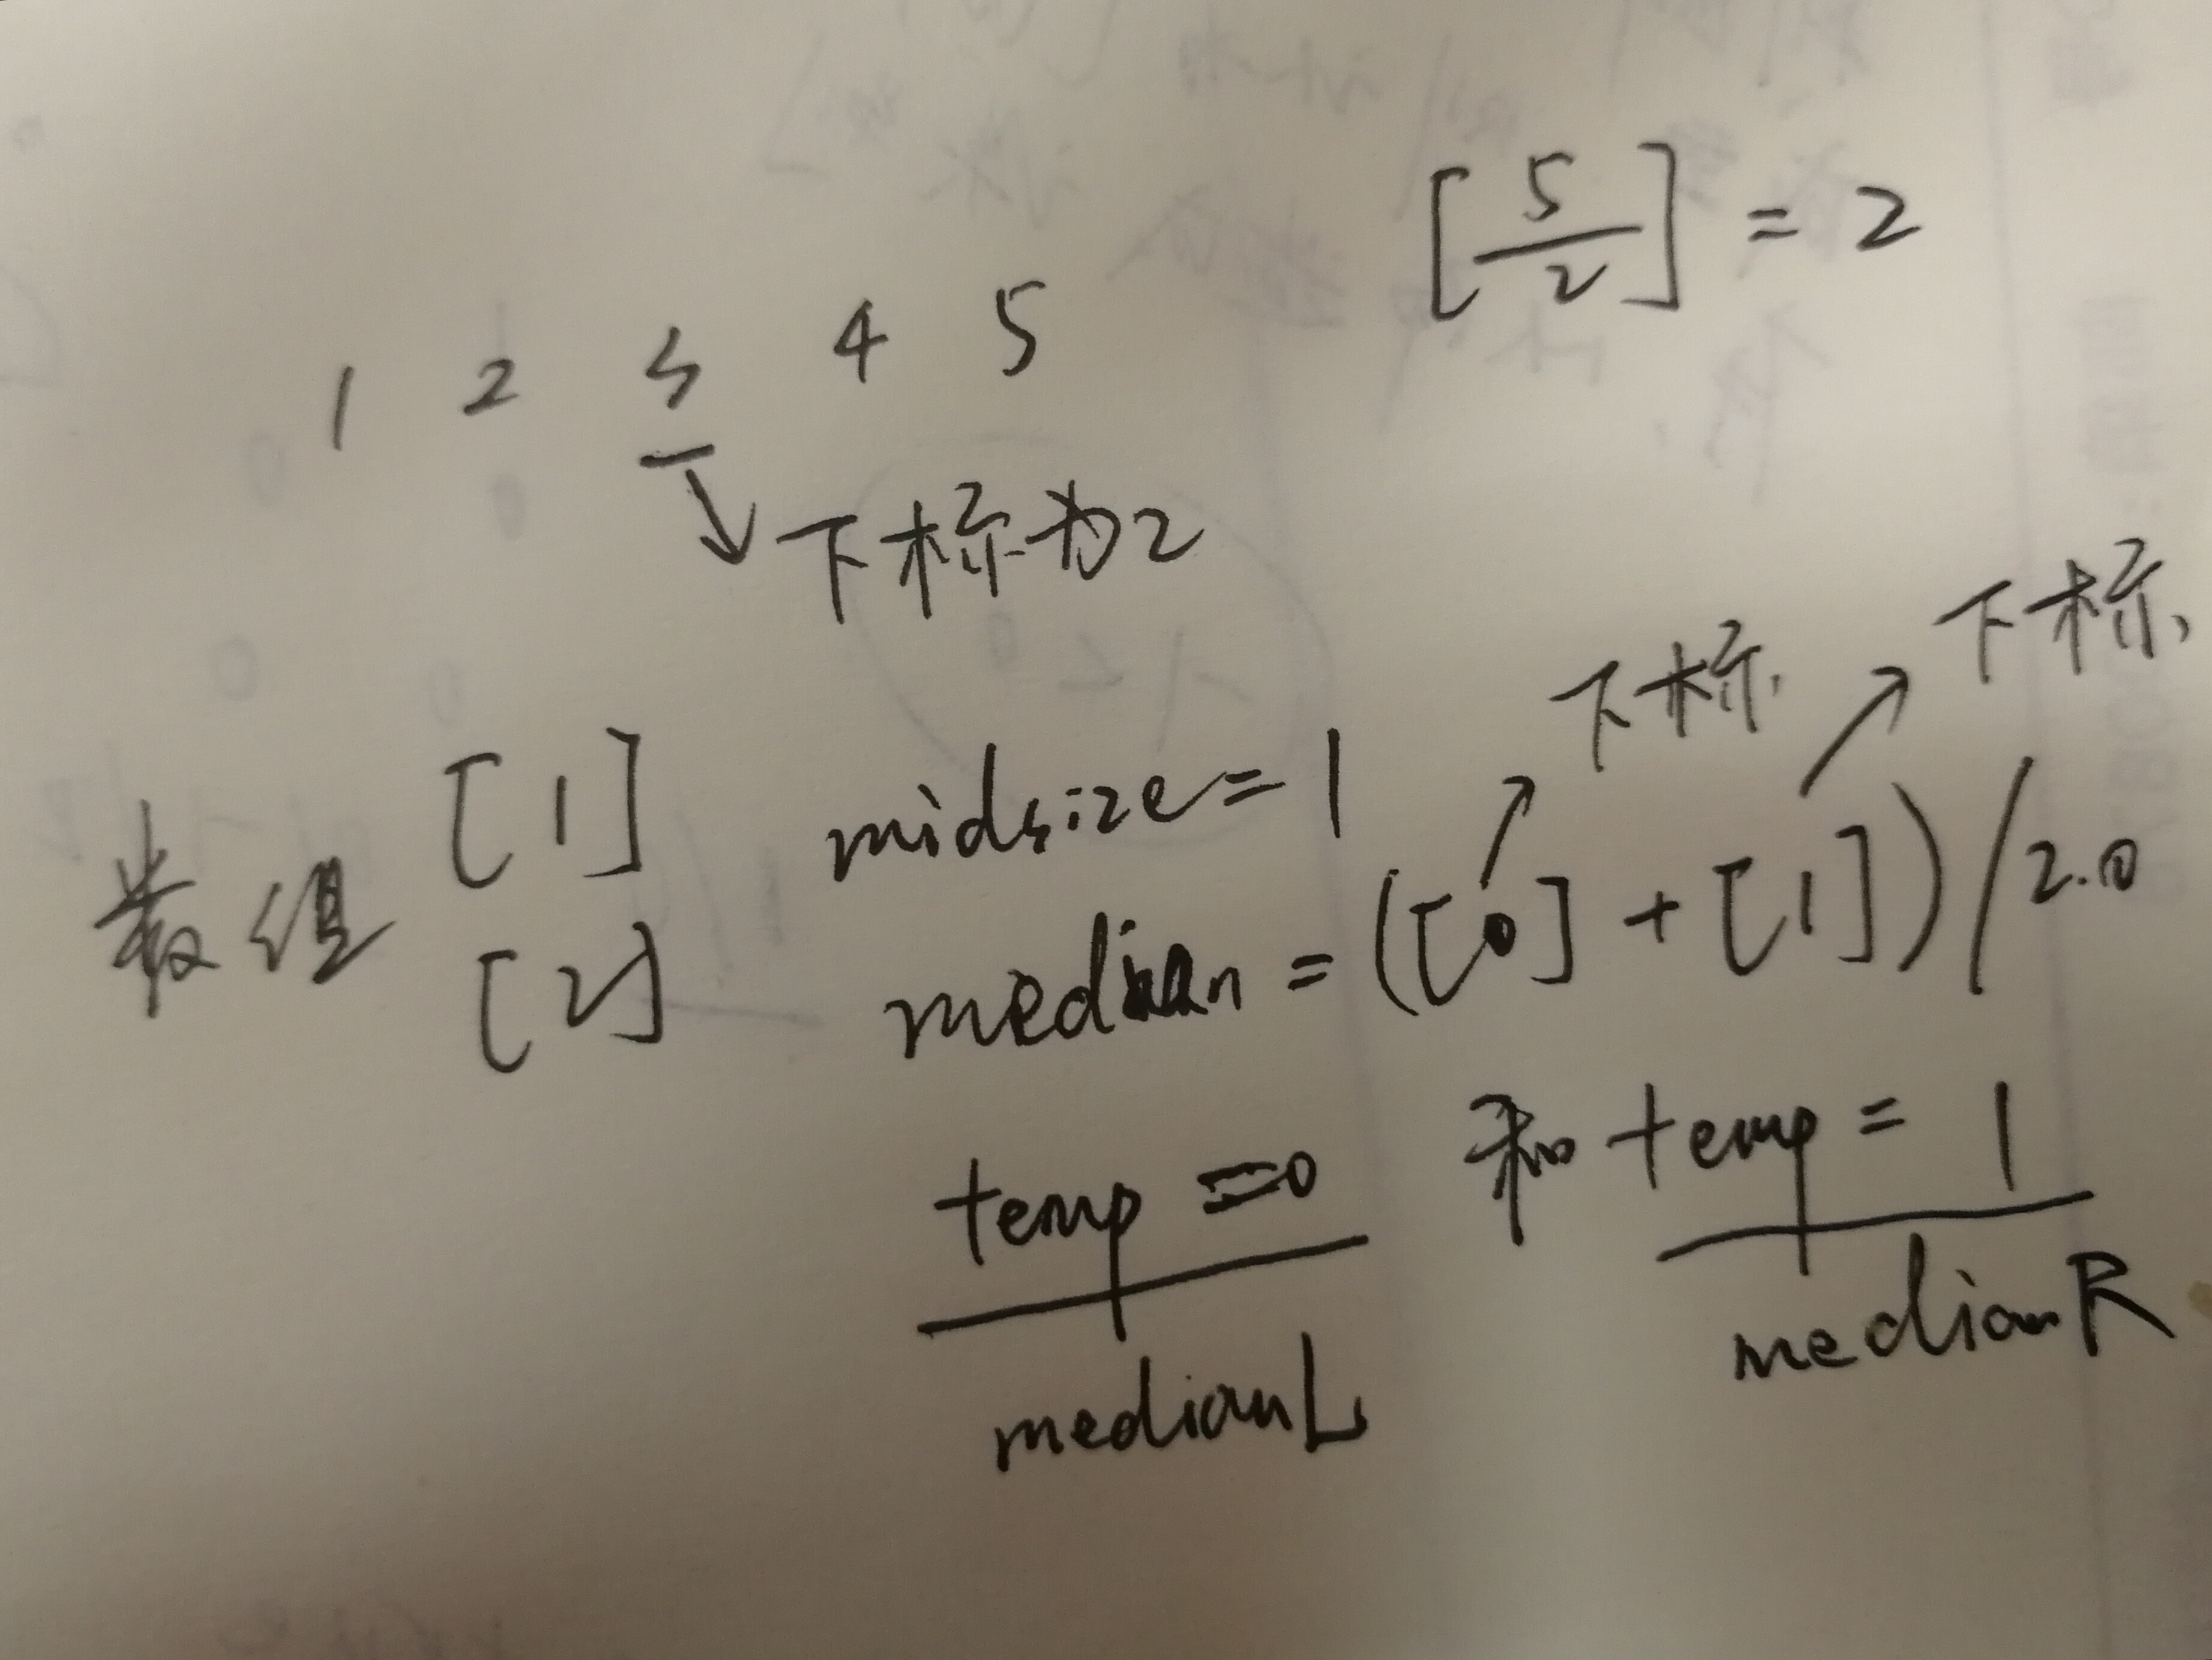 [5/2] = 2
1 2 3 4 5
下标为2
下标 下标
数组 [1] midsize=1
[2] median = ([0] + [1])/2.0
temp =0 和 temp = 1
medianL medianR